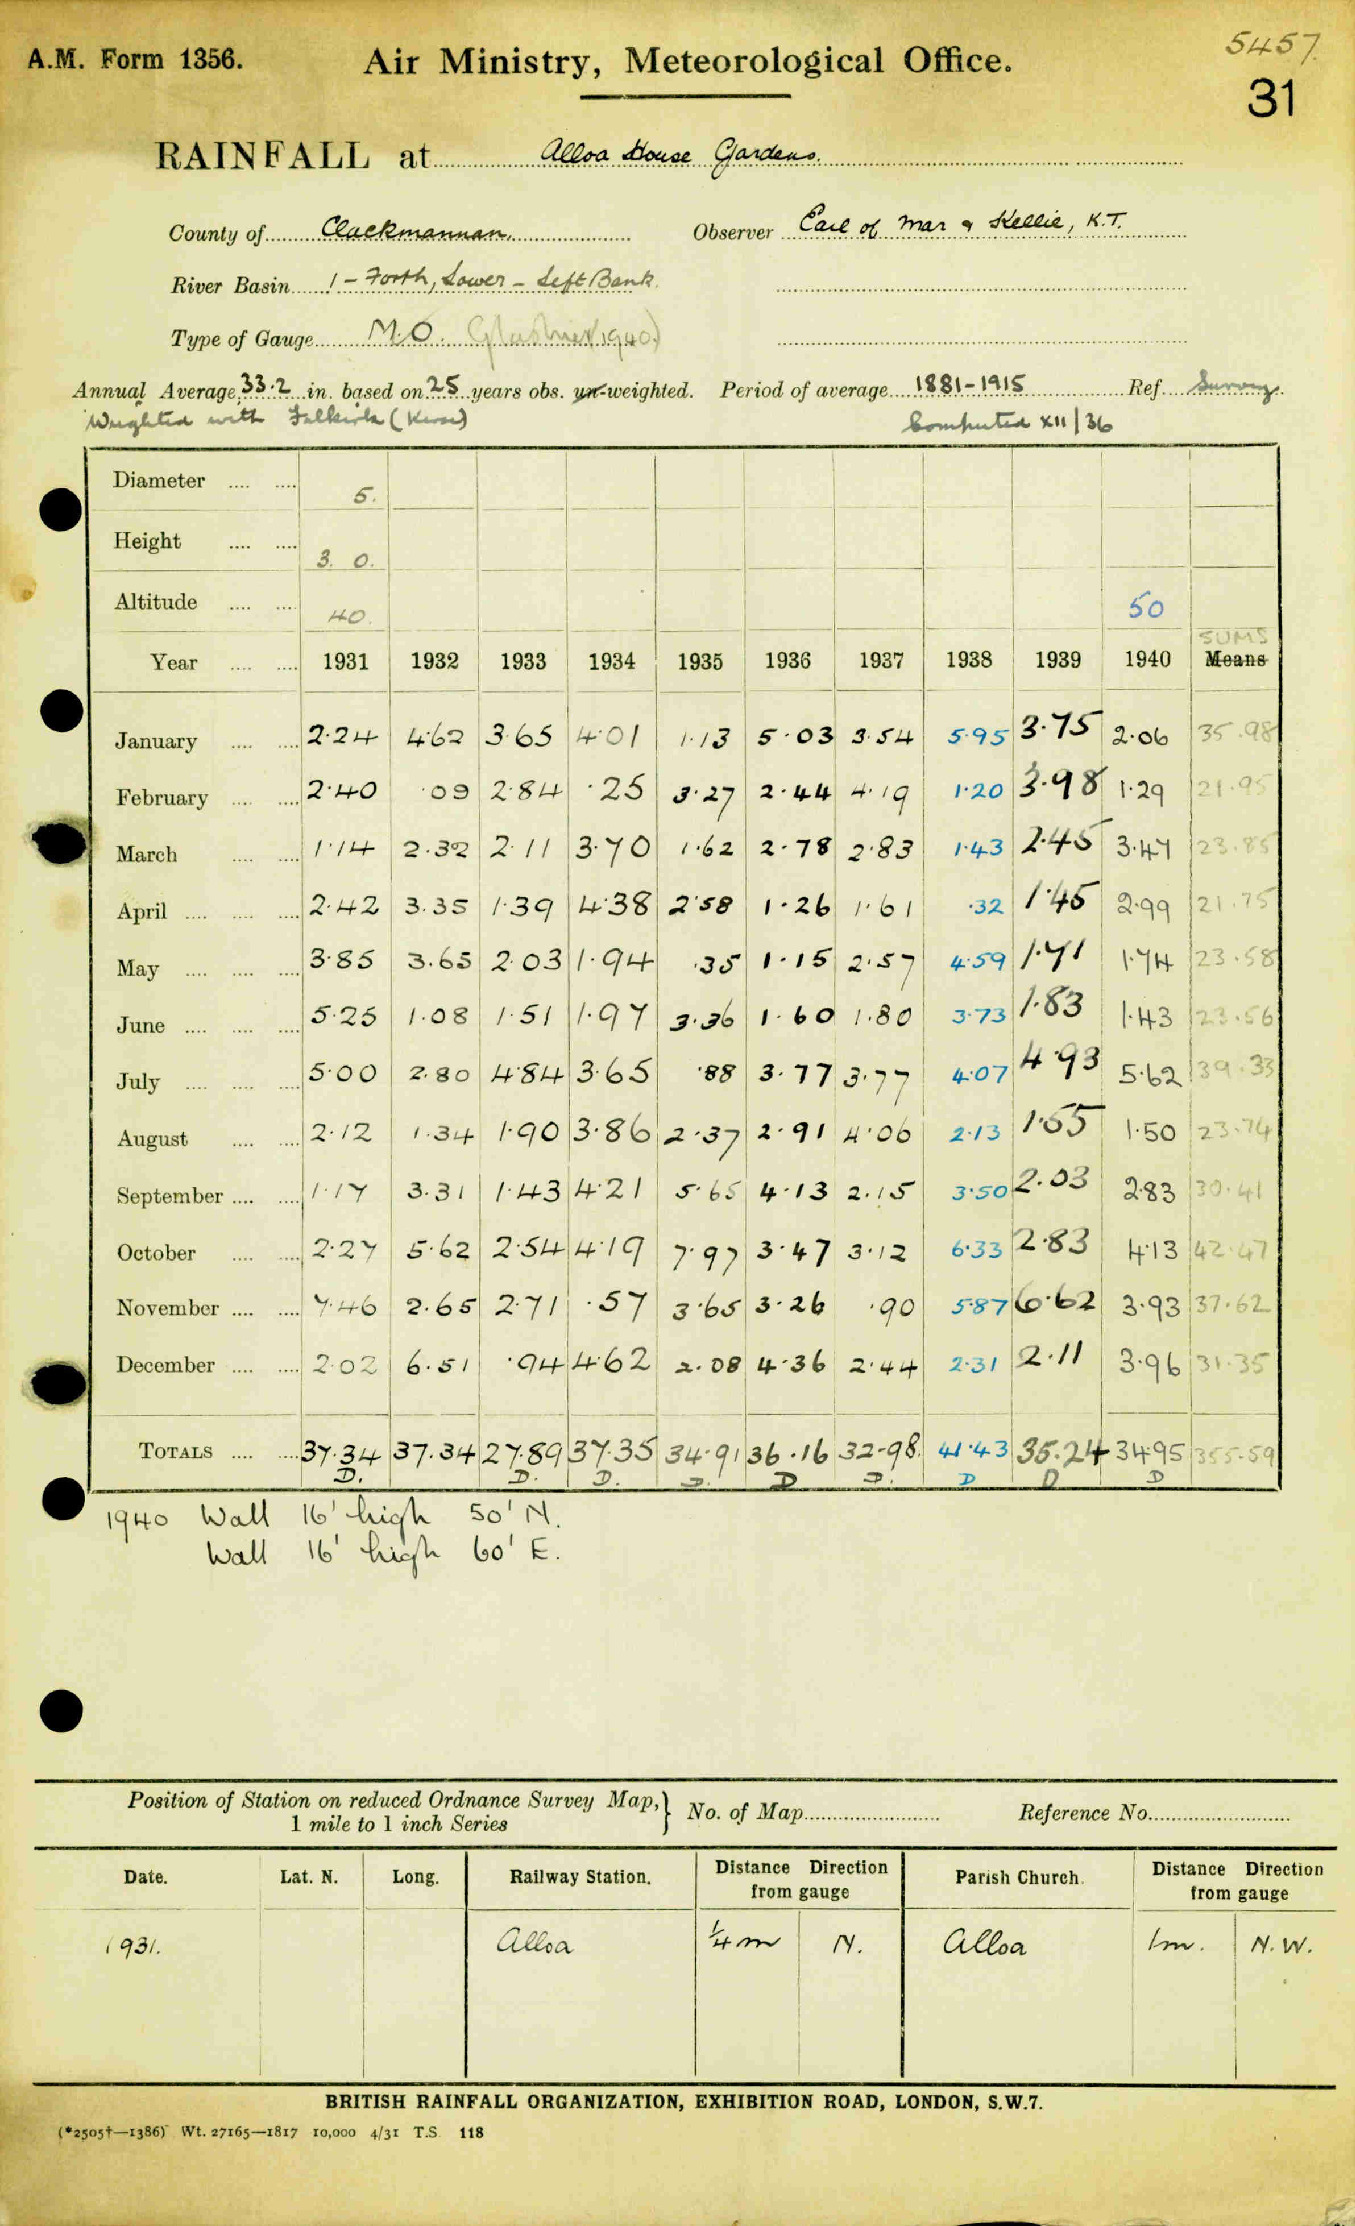 5457.
A.M. Form 1356. Air Ministry, Meteorological Office.
31
RAINFALL at Alloa House Gardens.
County of Clackmannan. Observer Earl of Mar & Kellie, K.T.
River Basin 1 - Forth, Lower - Left Bank.
Type of Gauge M.O. Glasher (1940)
Annual Average 33.2 in. based on 25 years obs. un-weighted. Period of average 1881-1915 Ref. Survey.
Weighted with Falkirk (Kerse) Computed XII/36
Diameter 5.
Height 3. 0.
Altitude 40. 50
SUMS
Year 1931 1932 1933 1934 1935 1936 1937 1938 1939 1940 Means
January 2.24 4.62 3.65 4.01 1.13 5.03 3.54 5.95 3.75 2.06 35.98
February 2.40 .09 2.84 .25 3.27 2.44 4.19 1.20 3.98 1.29 21.95
March 1.14 2.32 2.11 3.70 1.62 2.78 2.83 1.43 2.45 3.47 23.85
April 2.42 3.35 1.39 4.38 2.58 1.26 1.61 .32 1.45 2.99 21.75
May 3.85 3.65 2.03 1.94 .35 1.15 2.57 4.59 1.71 1.74 23.58
June 5.25 1.08 1.51 1.97 3.36 1.60 1.80 3.73 1.83 1.43 23.56
July 5.00 2.80 4.84 3.65 .88 3.77 3.77 4.07 4.93 5.62 39.33
August 2.12 1.34 1.90 3.86 2.37 2.91 4.06 2.13 1.55 1.50 23.74
September 1.17 3.31 1.43 4.21 5.65 4.13 2.15 3.50 2.03 2.83 30.41
October 2.27 5.62 2.54 4.19 7.97 3.47 3.12 6.33 2.83 4.13 42.47
November 7.46 2.65 2.71 .57 3.65 3.26 .90 5.87 6.62 3.93 37.62
December 2.02 6.51 .94 4.62 2.08 4.36 2.44 2.31 2.11 3.96 31.35
TOTALS 37.34 37.34 27.89 37.35 34.91 36.16 32.98 41.43 35.24 34.95 355.59
D. D. D. D. D D. D D D
1940 Wall 16' high 50' N.
Wall 16' high 60' E.
Position of Station on reduced Ordnance Survey Map,} No. of Map Reference No.
1 mile to 1 inch Series
Date. Lat. N. Long. Railway Station. Distance Direction from gauge Parish Church. Distance Direction from gauge
1931. Alloa 1/4 m N. Alloa 1m. N.W.
BRITISH RAINFALL ORGANIZATION, EXHIBITION ROAD, LONDON, S.W.7.
(*2505†—1386) Wt. 27165—1817 10,000 4/31 T.S. 118